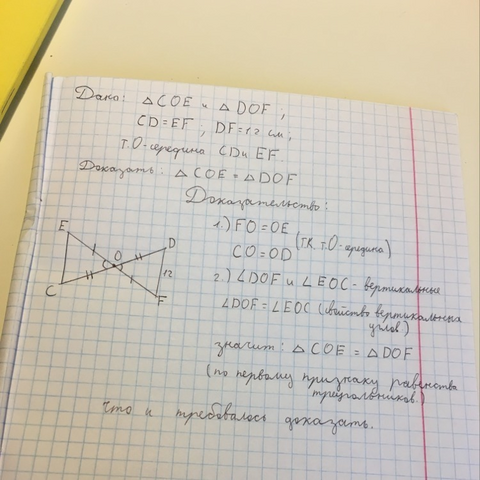 Дано: △COE и △DOF ,
CD=EF , DF=12 см,
т.О-середина CD и EF.
Доказать: △COE = △DOF
Доказательство:
1.) FO=OE
CO=OD
(т.к. т.О-середина)
E
O
D
12
C
F
2.) ∠DOF и ∠EOC - вертикальные
∠DOF = ∠EOC (свойство вертикальных
углов)
значит: △COE = △DOF
(по первому признаку равенства
треугольников.)
что и требовалось доказать.